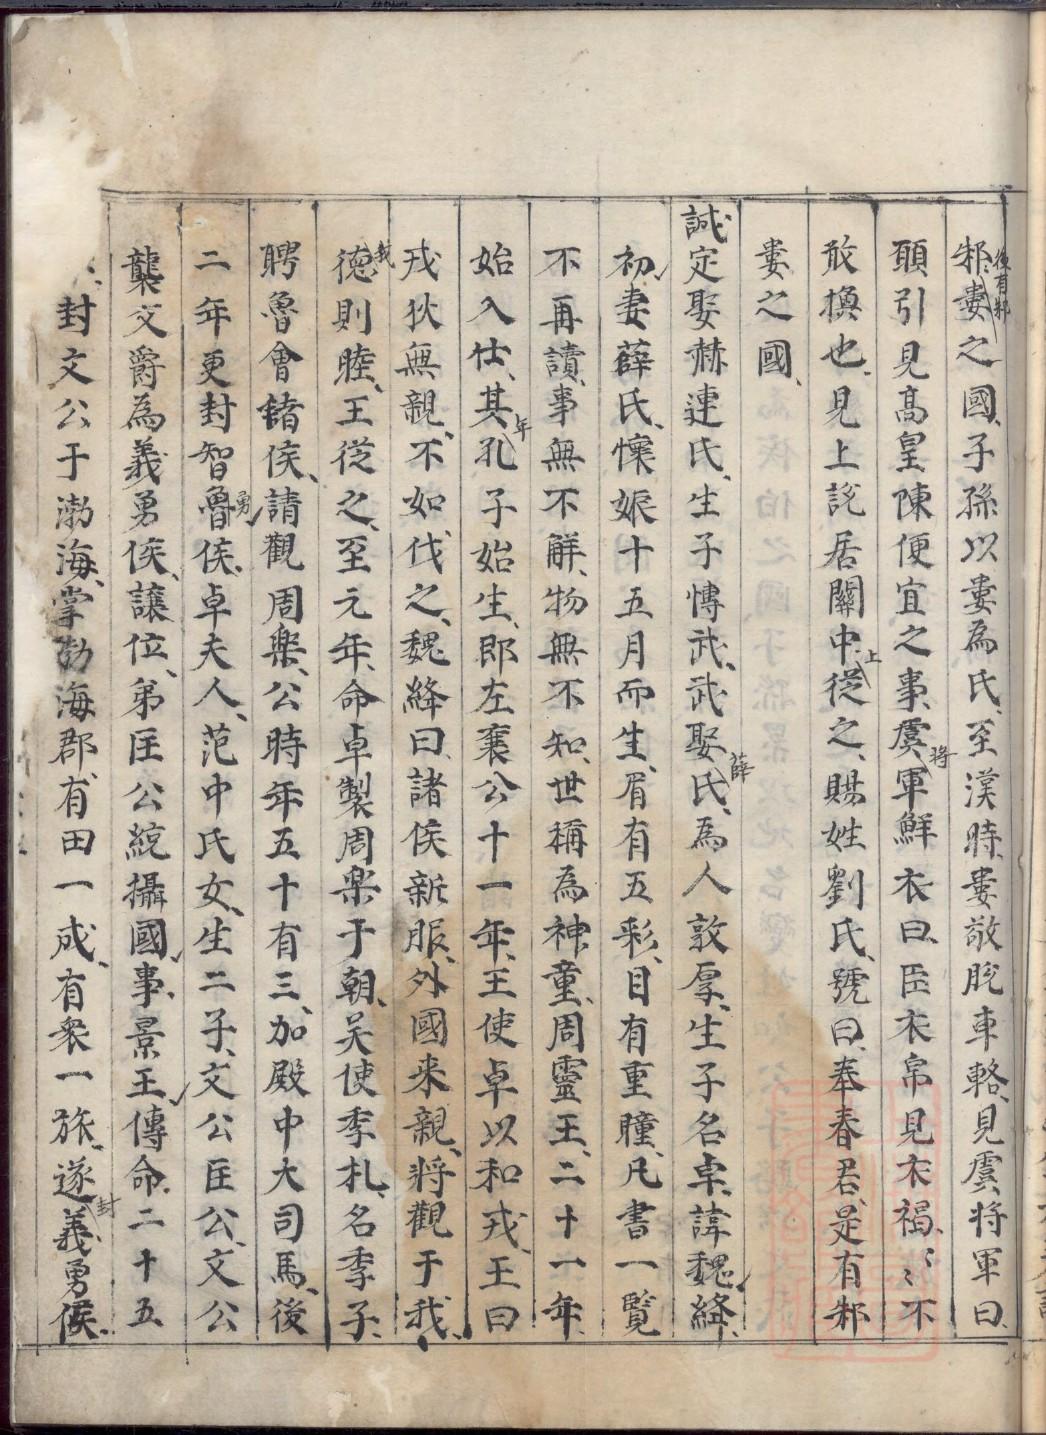 邾婁之國子孫以婁為氏至漢時婁敬脫車輅見虞將軍曰
願引見高皇陳便宜之事虞將軍鮮衣曰臣衣帛見衣褐〻不
敢換也見上説居關中上從之賜姓劉氏號曰奉春君是有邾
婁之國
誠定娶赫連氏生子愽武武娶薛氏為人敦厚生子名卓諱魏絳
初妻薛氏懷娠十五月而生眉有五彩目有重瞳凡書一覧
不再讀事無不解物無不知世稱為神童周靈王二十一年
始入仕其年孔子始生即左襄公十一年王使卓以和戎王曰
戎狄無親不如伐之魏絳曰諸侯新服外國来親將觀于我我
德則睦王從之至元年命卓製周楽于朝吴使季札名季子
聘魯會諸侯請觀周楽公時年五十有三加殿中大司馬後
二年更封智勇侯卓夫人范中氏女生二子文公匡公文公
襲文爵為義勇侯譲位弟匡公統攝國事景王傳命二十五
封文公于渤海掌渤海郡有田一成有衆一旅遂封義勇侯